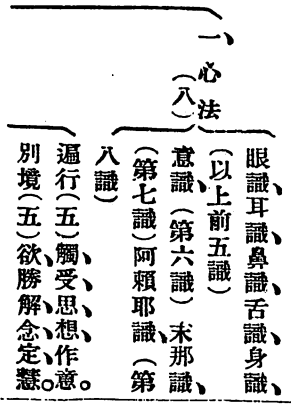 一、心法(八)
眼識、耳識、鼻識、舌識、身識、
(以上前五識)
意識、(第六識)末那識、
(第七識)阿賴耶識、(第
八識)
遍行(五)觸、受、思、想、作意。
別境(五)欲、勝解、念、定、慧。